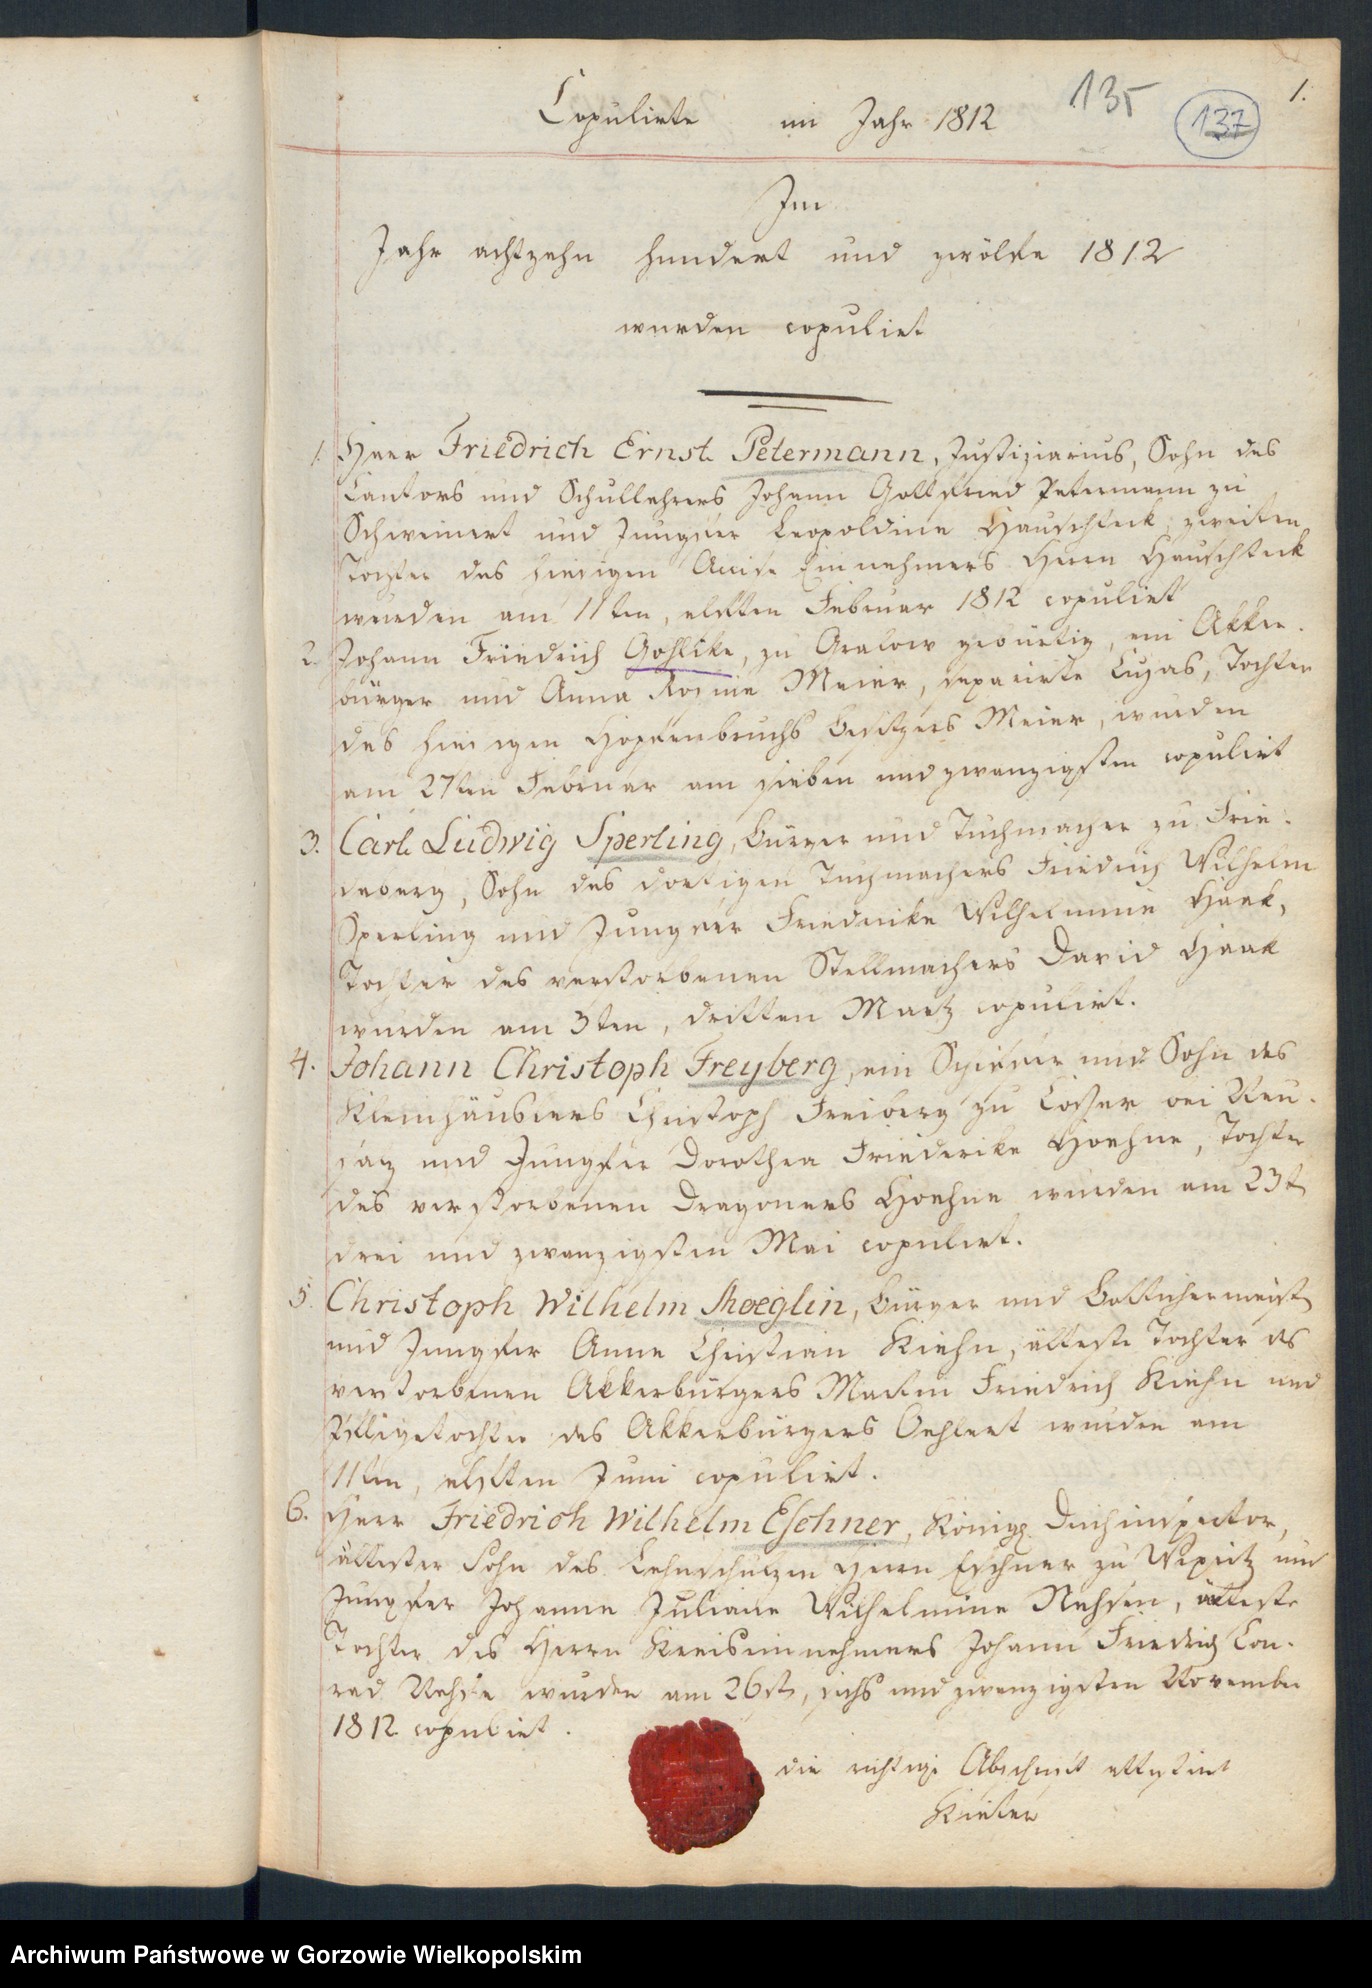 Copulirte im Jahr 1812
135
137
1.
Im
Jahr achtzehn hundert und zwölfe 1812
wurden copulirt
1. Herr Friedrich Ernst Petermann, Justiziarius, Sohn des
Cantors und Schullehrers Johann Gottfried Petermann zu
Schweinert und Jungfer Leopoldine Hauschteck, zweiten
Tochter des hiesigen Accise Einnehmers Herrn Hauschteck
wurden am 11ten, elften Februar 1812 copulirt
2. Johann Friedrich Gohlike, zu Gralow gebürtig, ein Akker-
bürger und Anna Rosine Meier, separirte Lujas, Tochter
des hiesigen Hopfenbruchs Besitzers Meier, wurden
am 27ten Februar am sieben und zwanzigsten copulirt
3. Carl Ludwig Sperling, Bürger und Tuchmacher zu Frie-
deberg, Sohn des dortigen Tuchmachers Friedrich Wilhelm
Sperling und Jungfer Friederike Wilhelmine Haak,
Tochter des verstorbenen Stellmachers David Haak
wurden am 3ten, dritten Martz copulirt.
4. Johann Christoph Freyberg, ein und Sohn des
Kleinhäuslers Christoph Freiberg zu bei Neu-
und Jungfer Dorothea Friederike Hoehne, Tochter
des verstorbenen Dragoners Hoehne wurden am 23t
drei und zwanzigsten Mai copulirt.
5. Christoph Wilhelm Moeglin, Bürger und Bötticher meist
und Jungfer Anne Christian Kiehn, älteste Tochter des
verstorbenen Akkerbürgers Martin Friedrich Kiehn und
Pflegetochter des Akkerbürgers Oehlert wurden am
11ten, elften Juni copulirt.
6. Herr Friedrich Wilhelm Eschner, Königl. Deichinspector,
ältester Sohn des Lehnschulzen Herrn Eschner zu Wepritz und
Jungfer Johanne Juliane Wilhelmine Nehsen, älteste
Tochter des Herrn Kreiseinnehmers Johann Friedrich Con-
rad Nehse wurden am 26st, sechs und zwanzigsten November
1812 copulirt.
die richtige Abschrift attestirt
Archiwum Państwowe w Gorzowie Wielkopolskim